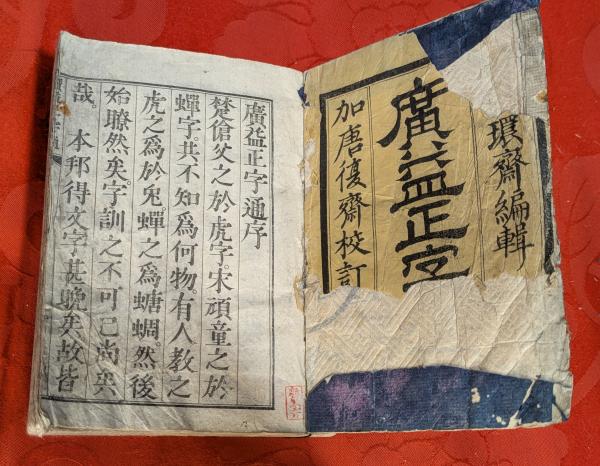 環齋編輯
廣益正字
加唐復齋校訂
廣益正字通序
楚傖父之於虎字。宋頑童之於
蟬字。共不知爲何物。有人教之
虎之爲於兔。蟬之爲螗蜩。然後
始瞭然矣。字訓之不可已尚矣
哉。 本邦得文字甚晚矣。故皆